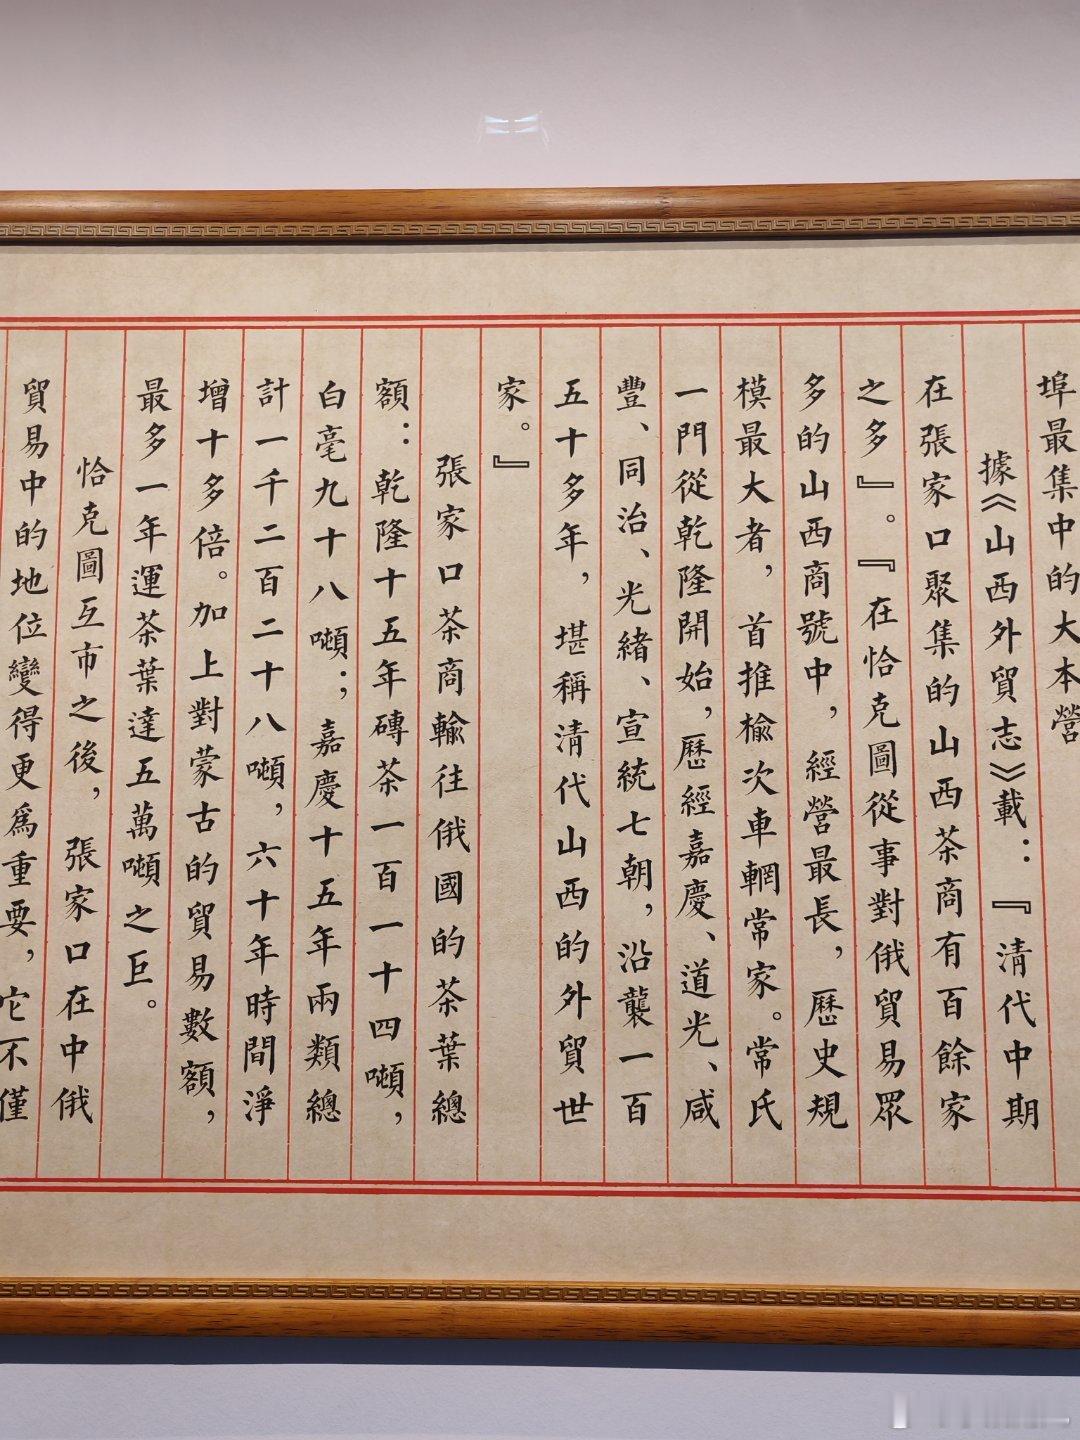 埠最集中的大本營
據《山西外貿志》載：『清代中期
在張家口聚集的山西茶商有百餘家
之多』。『在恰克圖從事對俄貿易眾
多的山西商號中，經營最長，歷史規
模最大者，首推榆次車輞常家。常氏
一門從乾隆開始，歷經嘉慶、道光、咸
豐、同治、光緒、宣統七朝，沿襲一百
五十多年，堪稱清代山西的外貿世
家。』
張家口茶商輸往俄國的茶葉總
額：乾隆十五年磚茶一百一十四噸，
白毫九十八噸；嘉慶十五年兩類總
計一千二百二十八噸，六十年時間淨
增十多倍。加上對蒙古的貿易數額，
最多一年運茶葉達五萬噸之巨。
恰克圖互市之後，張家口在中俄
貿易中的地位變得更為重要，它不僅